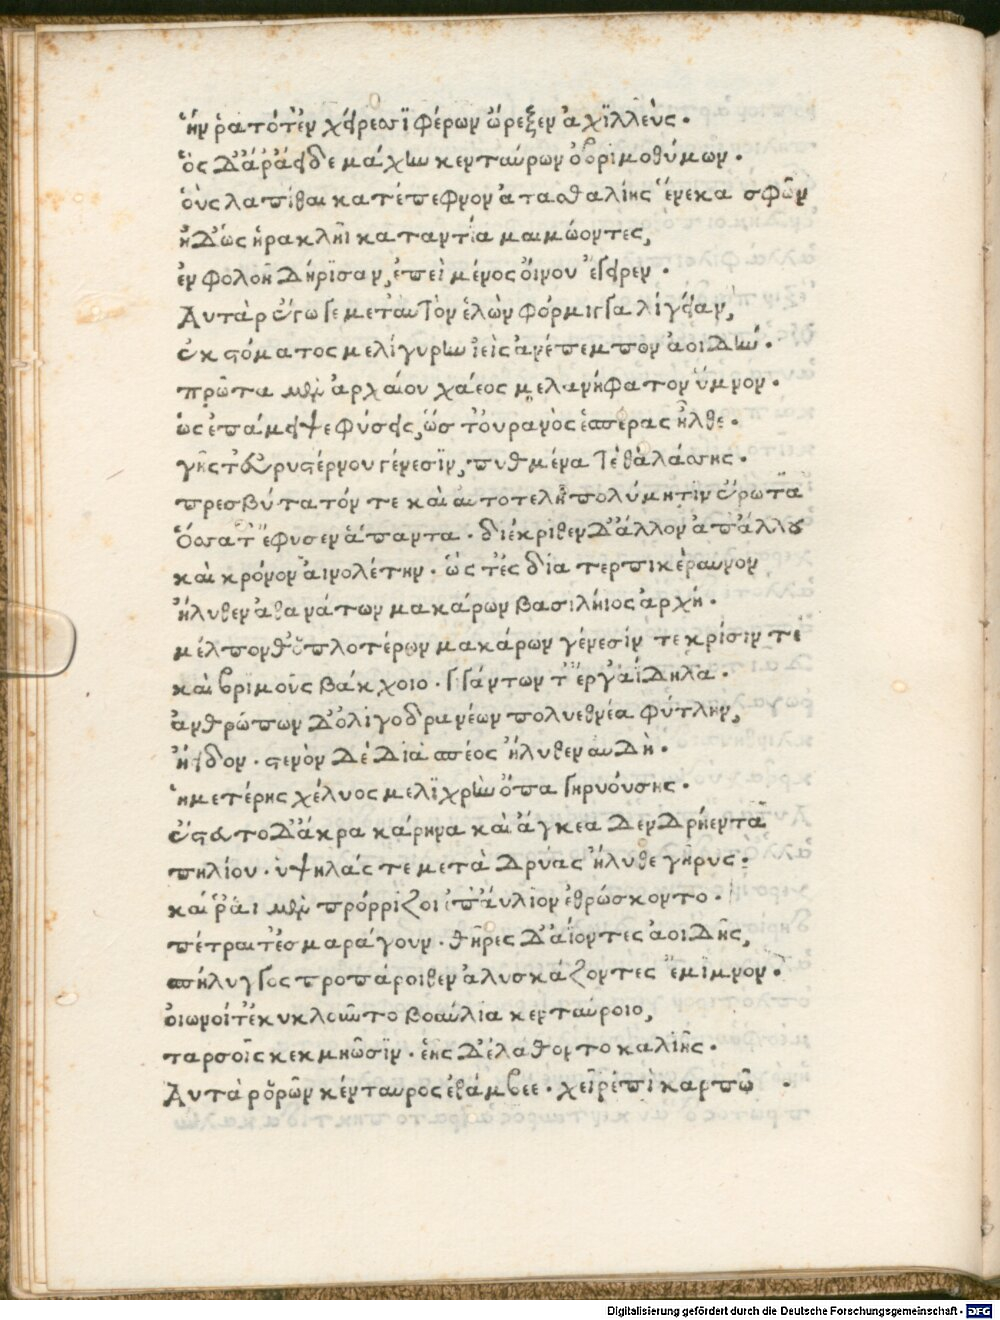 ἥν ῥα τότ' ἐν χείρεσσϊ φέρων ὤρεξεν ἀχϊλλεὺς.
ὃς δ' ἄρ' ἄειδε μάχην κενταύρων ὀβριμοθύμων.
οὓς λαπίθαι κατέπεφνον ἀτασθαλίης ἕνεκα σφῶν
ἠδ' ὡς ἡρακλῆϊ καταντία μαιμώοντες,
ἐν φολόῃ δήρϊσαν, ἐπεὶ μένος οἶνου ἔγειρεν.
Αυτὰρ ἔγωγε μετ' αὐτὸν ἑλὼν φόρμιγγα λίγειαν,
ἐκ στόματος μελίγυρην ἱεὶς ἀνέπεμπον ἀοιδήν.
πρῶτα μὲν ἀρχαίου χάεος μελανήφατον ὕμνον.
ὡς ἐπάμειψε φύσεις, ὥς τ' οὐρανὸς ἐς πέρας ἦλθε.
γῆς τ' εὐρυστέρνου γένεσϊν, πυθμένα τὲ θαλάσσης.
πρεσβύτατόν τε καὶ αὐτοτελῆ πολύμητιν ἔρωτα
Ὅσσα τ' ἔφυσεν ἅπαντα. διέκριθεν δ' ἄλλον ἀπ' άλλου
καὶ κρόνον αἰνολέτην. ὥς τ' ἐς δία τερπικέραυνον
ἤλυθεν ἀθανάτων μακάρων βασιλήιος ἀρχή.
μέλπον θ' ὁπλοτέρων μακάρων γένεσίν τε κρίσιν τὲ
καὶ βριμοῦς βάκχοιο. γιγάντων τ' ἔργ' ἀΐδηλα.
ἀνθρώπων δ' ὀλίγοδρανέων πολυεθνέα φύτλην,
ἤειδον. στενὸν δὲ διὰ σπέος ἤλυθεν αὐδὴ.
ἡμετέρης χέλυος μελϊχρὴν ὄπα γηρυούσης.
ἔπτατο δ' ἄκρα κάρηνα καὶ ἄγκεα δενδρήεντα
πηλίου. ὑψηλάς τε μετὰ δρύας ἤλυθε γῆρυς.
καί ῥ' αἱ μὲν πρόρριζοι ἐπ' αύλιον ἐθρώσκοντο.
πέτραι τ' ἐσμαράγουν. θῆρες δ' αἴοντες ἀοιδῆς,
σπήλυγγος προπάροιθεν ἀλυσκάζοντες ἔμιμνον.
οἰωνοί τ' ἐκυκλοῦντο βοαύλία κενταύροιο,
ταρσοῖς κεκμηῶσϊν. ἑῆς δ' ἐλάθοντο καλίῆς.
Αυτὰρ ὁρῶν κένταυρος ἐθάμβεε. χεῖρ' ἐπὶ καρπῶ.